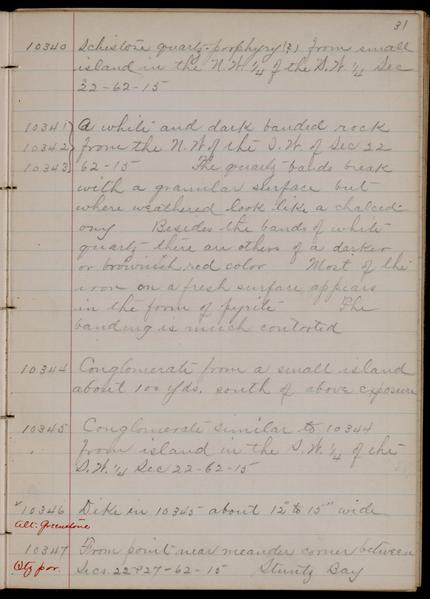 31
10340 Schistose quartz-porphyry(?) from small
island in the N.W. 1/4 of the S.W. 1/4 Sec
22-62-15
10341 A white and dark banded rock
10342 from the N.W of the S.W. of Sec 22
10343 62-15 The quartz bands break
with a granular surface but
where weathered look like a chalced-
ony Besides the bands of white
quartz there are others of a darker
or brownish red color Most of the
iron on a fresh surface appears
in the form of pyrite The
banding is much contorted
10344 Conglomerate from a small island
about 100 yds. south of above exposure
10345 Conglomerate similar to 10344
from island in the S.W. 1/4 of the
S.W. 1/4 Sec 22-62-15
10346 Dike in 10345 about 12" to 15" wide
Alt. Greenstone
10347 From point near meander corner between
Qtz por. Secs. 22 & 27-62-15 Stuntz Bay